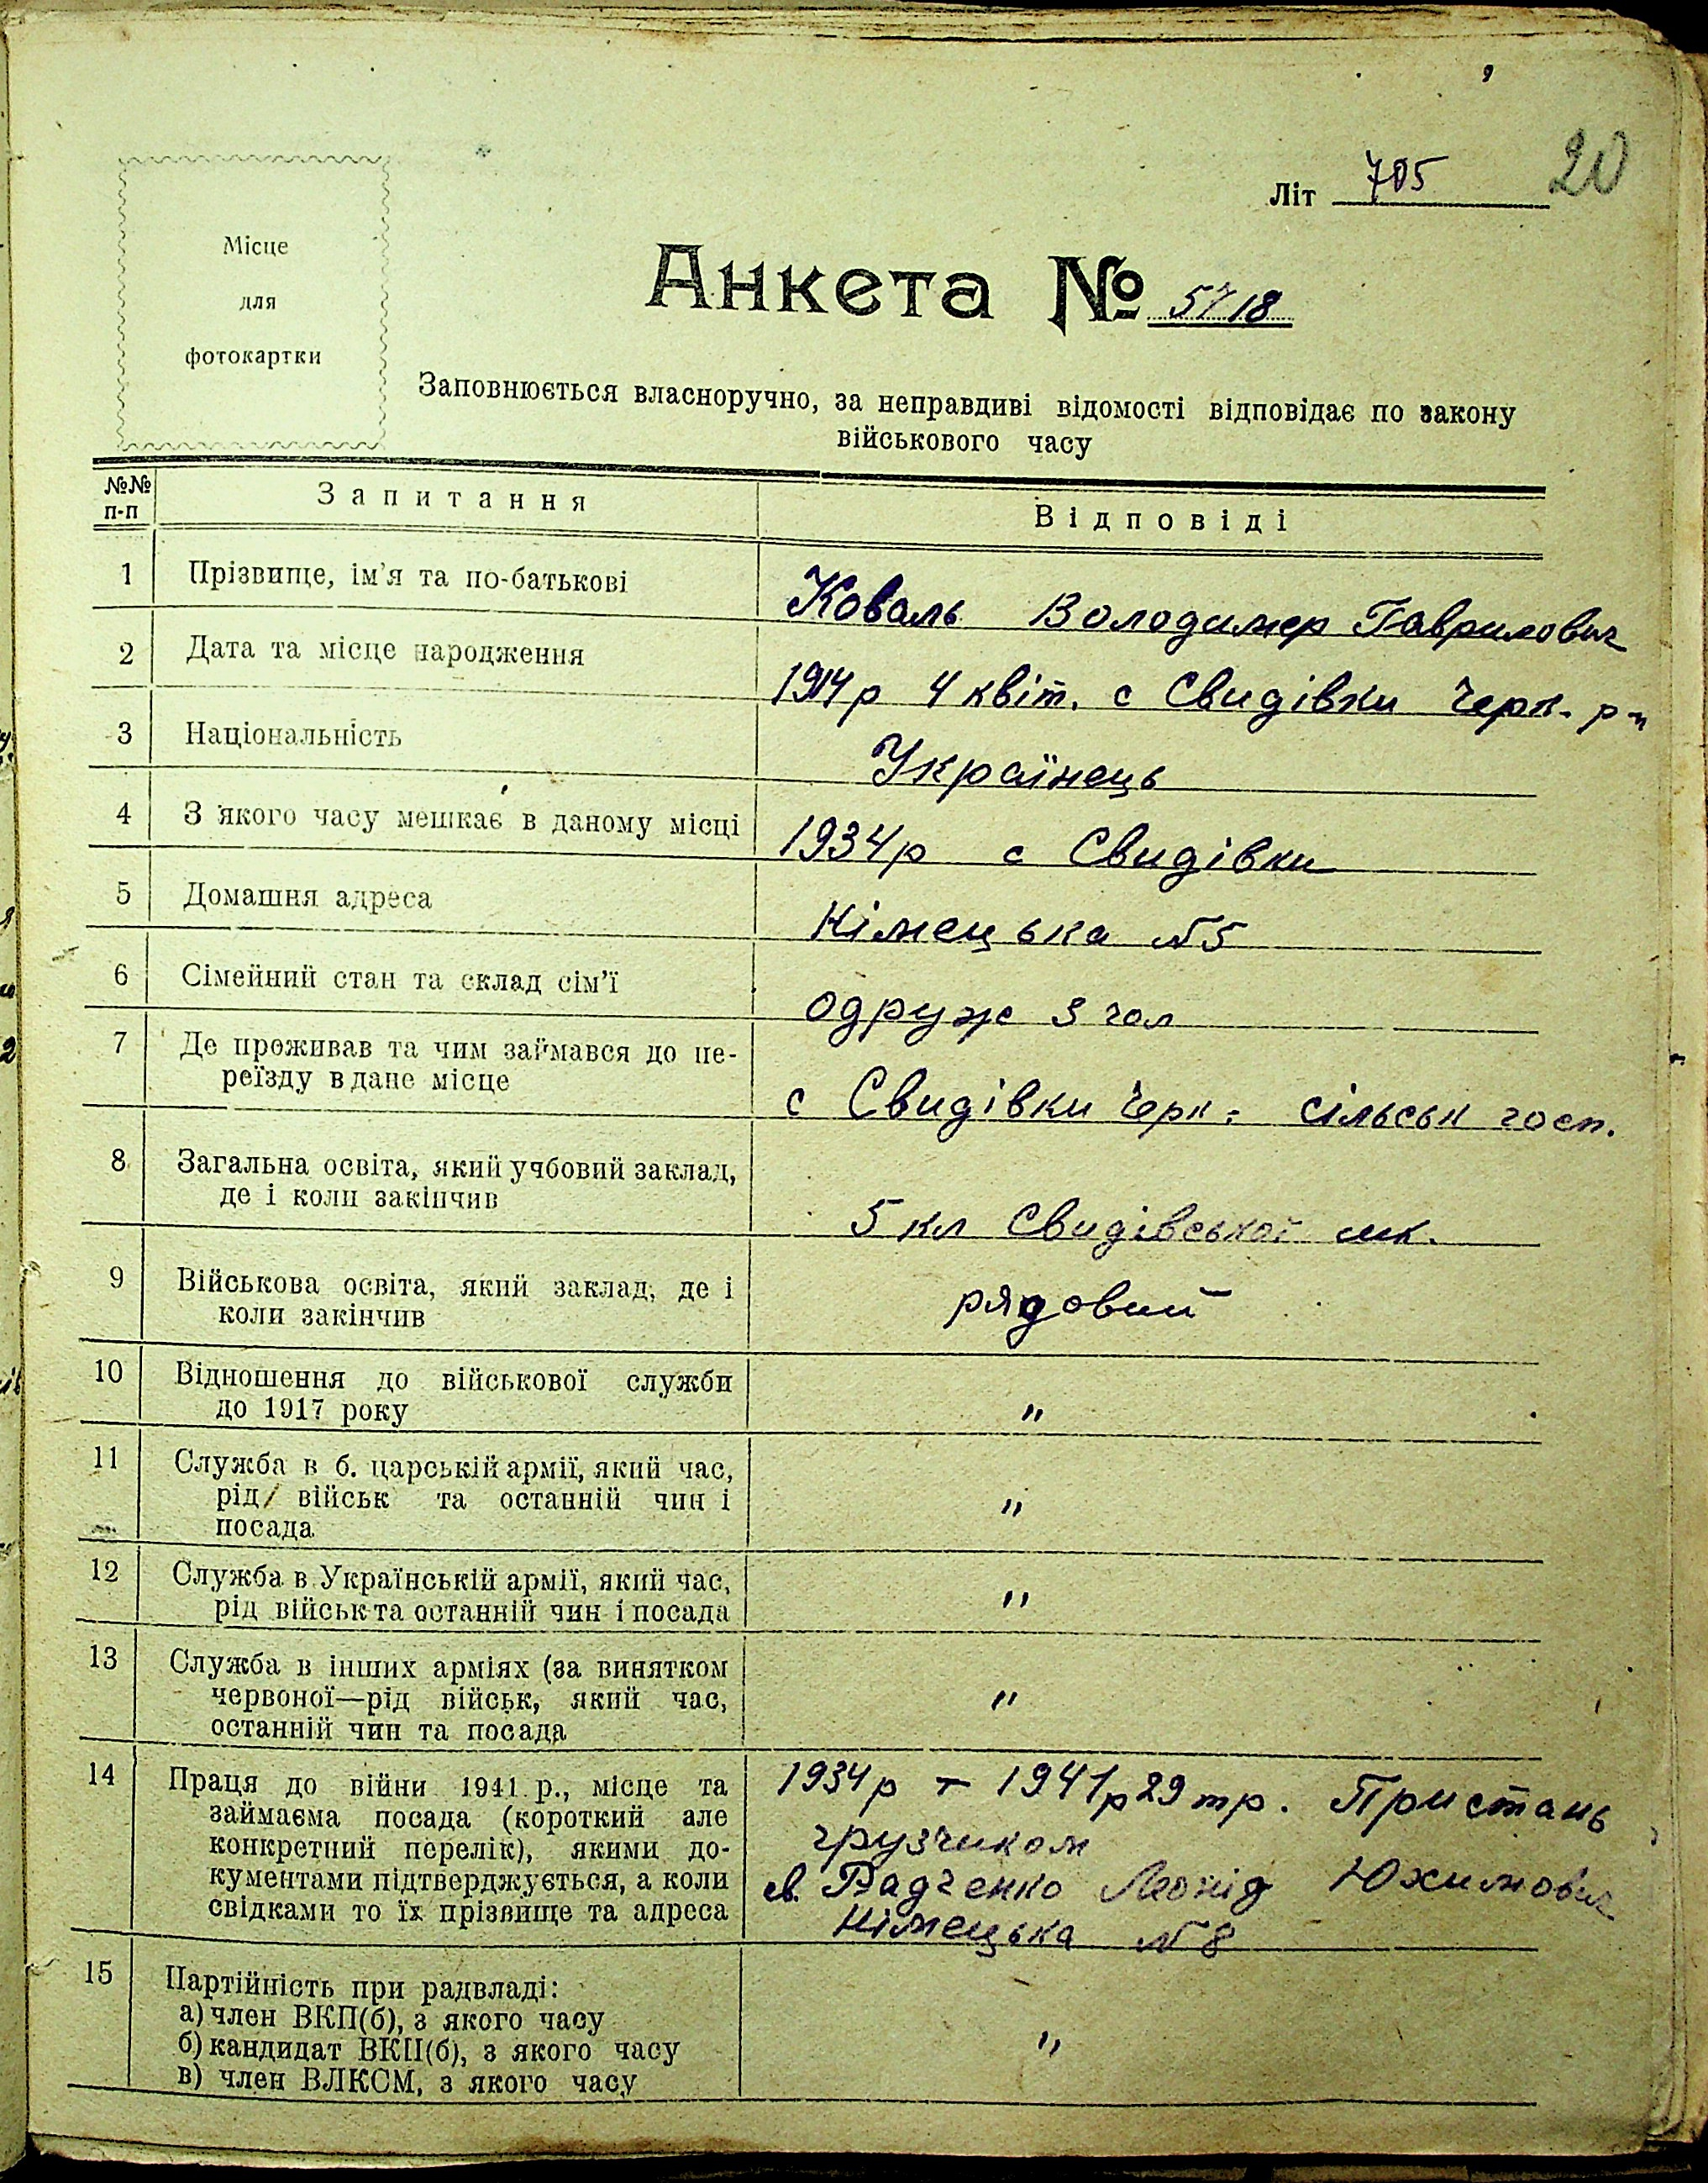 20
Літ 705
Місце
для
фотокартки
Анкета № 5718
Заповнюється власноручно, за неправдиві відомості відповідає по закону
військового часу
№№ п-п Запитання Відповіді
1 Прізвище, ім'я та по-батькові Коваль Володимер Гаврилович
2 Дата та місце народження 1914р 4 квіт. с Свидівки Черк. р-н
3 Національність Українець
4 З якого часу мешкає в даному місці 1934р с Свидівки
5 Домашня адреса Німецька №5
6 Сімейний стан та склад сім'ї одруж 3 чол
7 Де проживав та чим займався до пе-
реїзду в дане місце
с Свидівки Черк. сільськ госп.
8 Загальна освіта, який учбовий заклад,
де і коли закінчив
5 кл Свидівської шк.
9 Військова освіта, який заклад, де і
коли закінчив
рядовий
10 Відношення до військової служби
до 1917 року
"
11 Служба в б. царській армії, який час,
рід військ та останній чин і
посада
"
12 Служба в Українській армії, який час,
рід військ та останній чин і посада
"
13 Служба в інших арміях (за винятком
червоної—рід військ, який час,
останній чин та посада
"
14 Праця до війни 1941 р., місце та
займаєма посада (короткий але
конкретний перелік), якими до-
кументами підтверджується, а коли
свідками то їх прізвище та адреса
1934р – 1941р 29 тр. Пристань
грузчиком
св. Радченко Леонід Юхимович
Німецька №8
15 Партійність при радвладі:
а) член ВКП(б), з якого часу
б) кандидат ВКП(б), з якого часу
в) член ВЛКСМ, з якого часу
"